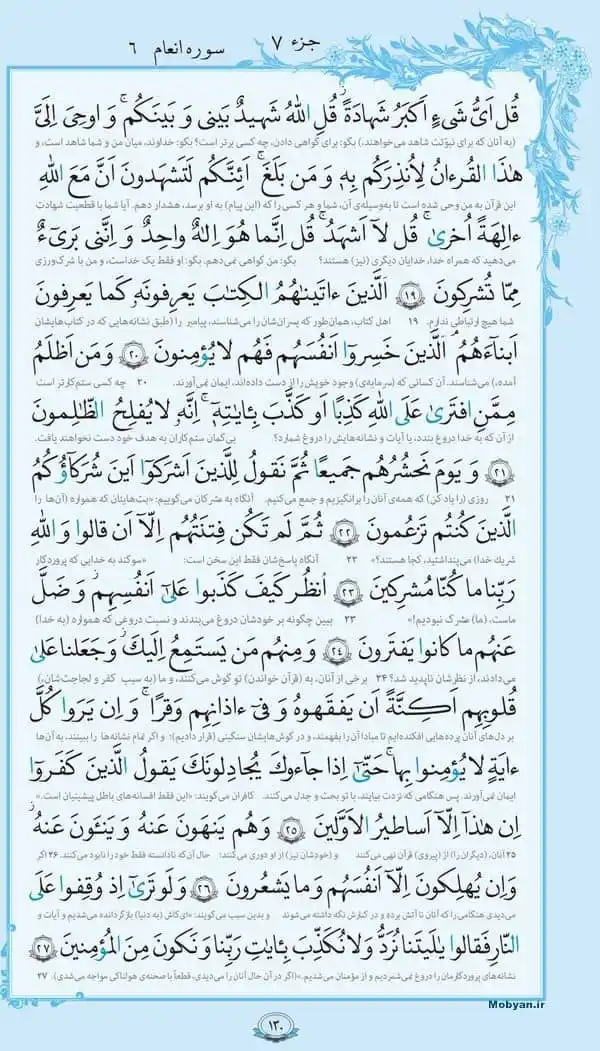 جزء ۷
سوره انعام ۶
قُل اَیُّ شَیءٍ اَکبَرُ شَهادَةً ۖ قُلِ اللهُ شَهیدٌ بَینی وَ بَینَکُم ۚ وَ اوحِیَ اِلَیَّ
(به آنان که برای نبوّتت شاهد می‌خواهند،) بگو: برای گواهی دادن، چه کسی برتر است؟ بگو: خداوند، میان من و شما شاهد است، و
هٰذَا القُرءانُ لِاُنذِرَکُم بِهٖ وَ مَن بَلَغَ ۚ اَئِنَّکُم لَتَشهَدونَ اَنَّ مَعَ اللهِ
این قرآن به من وحی شده است تا به‌وسیله‌ی آن، شما و هر کسی را که (این پیام) به او برسد، هشدار دهم. آیا شما با قطعیت شهادت
ءالِهَةً اُخریٰ ۚ قُل لآ اَشهَدُ ۚ قُل اِنَّما هُوَ اِلٰهٌ واحِدٌ وَ اِنَّنی بَریٓءٌ
می‌دهید که همراه خدا، خدایان دیگری (نیز) هستند؟ بگو: من گواهی نمی‌دهم. بگو: او فقط یک خداست، و من با شرک‌ورزی
مِمّا تُشرِکونَ ﴿۱۹﴾ اَلَّذینَ ءاتَینٰهُمُ الکِتٰبَ یَعرِفونَهٗ کَما یَعرِفونَ
شما هیچ ارتباطی ندارم. ۱۹ اهل کتاب، همان‌طور که پسران‌شان را می‌شناسند، پیامبر را (طبق نشانه‌هایی که در کتاب‌هایشان
اَبنآءَهُمُ ۘ الَّذینَ خَسِروٓا اَنفُسَهُم فَهُم لا یُؤمِنونَ ﴿۲۰﴾ وَ مَن اَظلَمُ
آمده،) می‌شناسند. آن کسانی که (سرمایه‌ی) وجود خویش را از دست داده‌اند، ایمان نمی‌آورند. ۲۰ چه کسی ستم‌کارتر است
مِمَّنِ افتَریٰ عَلَی اللهِ کَذِبًا اَو کَذَّبَ بِـٔایٰتِهٖٓ ۗ اِنَّهٗ لا یُفلِحُ الظّٰلِمونَ
از آن که به خدا دروغ بندد، یا آیات و نشانه‌هایش را دروغ شمارد؟ بی‌گمان ستم‌کاران به هدف خود دست نخواهند یافت.
﴿۲۱﴾ وَ یَومَ نَحشُرُهُم جَمیعًا ثُمَّ نَقولُ لِلَّذینَ اَشرَکوٓا اَینَ شُرَکآؤُکُمُ
۲۱ روزی (را یاد کن) که همه‌ی آنان را برانگیزیم و جمع می‌کنیم. آنگاه به مشرکان می‌گوییم: «بت‌هایتان که همواره (آن‌ها را
الَّذینَ کُنتُم تَزعُمونَ ﴿۲۲﴾ ثُمَّ لَم تَکُن فِتنَتُهُم اِلّآ اَن قالوا وَ اللهِ
شریک خدا) می‌پنداشتید، کجا هستند؟» ۲۲ آنگاه پاسخ‌شان فقط این سخن است: «سوگند به خدایی که پروردگار
رَبِّنا ما کُنّا مُشرِکینَ ﴿۲۳﴾ اُنظُر کَیفَ کَذَبوا عَلیٰٓ اَنفُسِهِم ۚ وَ ضَلَّ
ماست، (ما) مشرک نبودیم!» ۲۳ ببین چگونه بر خودشان دروغ می‌بندند و نسبت دروغی که همواره (به خدا)
عَنهُم ما کانوا یَفتَرونَ ﴿۲۴﴾ وَ مِنهُم مَن یَستَمِعُ اِلَیکَ ۖ وَ جَعَلنا عَلیٰ
می‌دادند، از نظرشان ناپدید شد؟ ۲۴ برخی از آنان، به (قرآن خواندن) تو گوش می‌کنند، و ما (به سبب کفر و لجاجت‌شان،)
قُلوبِهِم اَکِنَّةً اَن یَفقَهوهُ وَ فیٓ ءاذانِهِم وَقرًا ۚ وَ اِن یَرَوا کُلَّ
بر دل‌های آنان پرده‌هایی افکنده‌ایم تا مبادا آن را بفهمند، و در گوش‌هایشان سنگینی (قرار دادیم)؛ و اگر تمام نشانه‌ها را ببینند، به آن‌ها
ءایَةٍ لا یُؤمِنوا بِها ۚ حَتّیٰٓ اِذا جآءوکَ یُجادِلونَکَ یَقولُ الَّذینَ کَفَروٓا
ایمان نمی‌آورند. پس هنگامی که نزدت بیایند، با تو بحث و جدل می‌کنند. کافران می‌گویند: «این فقط افسانه‌های باطل پیشینیان است.»
اِن هٰذآ اِلّآ اَساطیرُ الاَوَّلینَ ﴿۲۵﴾ وَ هُم یَنهَونَ عَنهُ وَ یَنـَٔونَ عَنهُ ۖ
۲۵ آنان، (دیگران را) از (پیروی) قرآن نهی می‌کنند و (خودشان نیز) از او دوری می‌کنند؛ حال آن‌که نادانسته فقط خود را نابود می‌کنند. ۲۶ اگر
وَ اِن یُهلِکونَ اِلّآ اَنفُسَهُم وَ ما یَشعُرونَ ﴿۲۶﴾ وَ لَو تَریٰٓ اِذ وُقِفوا عَلَی
می‌دیدی هنگامی را که آنان با آتش برده و در کنارش نگاه داشته می‌شوند و بدین سبب می‌گویند: «ای‌کاش (به دنیا) بازگردانده می‌شدیم و آیات و
النّارِ فَقالوا یٰلَیتَنا نُرَدُّ وَ لا نُکَذِّبَ بِـٔایٰتِ رَبِّنا وَ نَکونَ مِنَ المُؤمِنینَ ﴿۲۷﴾
نشانه‌های پروردگارمان را دروغ نمی‌شمردیم و از مؤمنان می‌شدیم.» (اگر در آن حال آنان را می‌دیدی، قطعاً با صحنه‌ی هولناکی مواجه می‌شدی). ۲۷
Mobyan.ir
۱۳۰